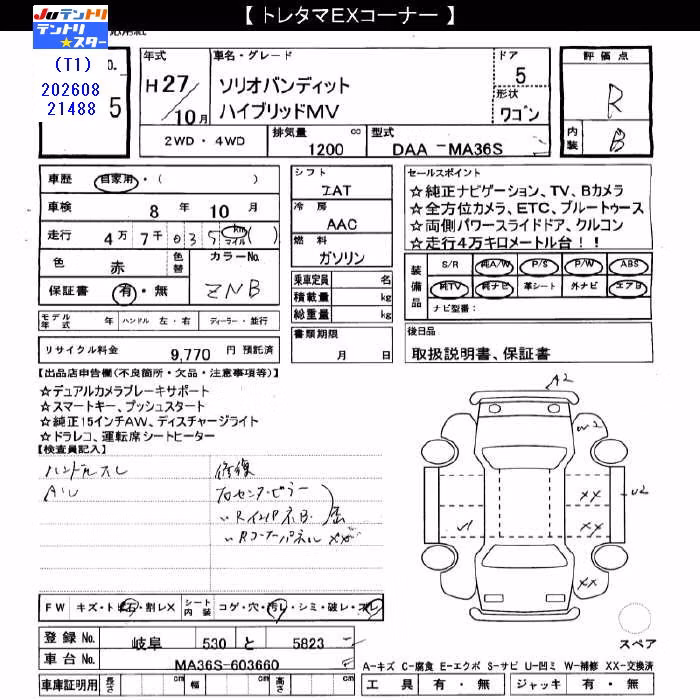 【 トレタマEXコーナー 】
Juテントリ
テントリ
★スター
(T1)
202608
21488
5
年式
H 27/10月
車名・グレード
ソリオバンディット
ハイブリッドMV
ドア
5
形状
ワゴン
評価点
R
内装
B
2WD ・ 4WD
排気量 1200 cc
型式 DAA -MA36S
車歴 自家用・( )
車検 8 年 10 月
走行 4万 7千 035 km マイル ( )
色 赤 色替
カラーNo. ZNB
保証書 有・無
シフト
IAT
冷房
AAC
燃料
ガソリン
乗車定員 名
積載量 kg
総重量 kg
セールスポイント
☆純正ナビゲーション、TV、Bカメラ
☆全方位カメラ、ETC、ブルートゥース
☆両側パワースライドドア、クルコン
☆走行4万キロメートル台!!
装備品
S/R 純A/W P/S P/W ABS
純TV 純ナビ 革シート 外ナビ エアB
ナビ型番:
モデル年式 年 ハンドル 左・右 ディーラー・並行
書類期限
月 日
後日品
取扱説明書、保証書
リサイクル料金 9,770 円 預託済
【出品店申告欄(不良箇所・欠品・注意事項等)】
☆デュアルカメラブレーキサポート
☆スマートキー、プッシュスタート
☆純正15インチAW、ディスチャージライト
☆ドラレコ、運転席シートヒーター
【検査員記入】
ハンドルスレ
修復
A2
U2
XX
XX
XX
FW キズ・ト 石・割レX
シート内装 コゲ・穴・汚レ・シミ・破レ・スレ
登録 No. 岐阜 530 と 5823
車台 No. MA36S-603660
スペア
A-キズ C-腐食 E-エクボ S-サビ U-凹ミ W-補修 XX-交換済
車庫証明用 長さ cm 幅 cm 高さ cm
工具 有・無 ジャッキ 有・無